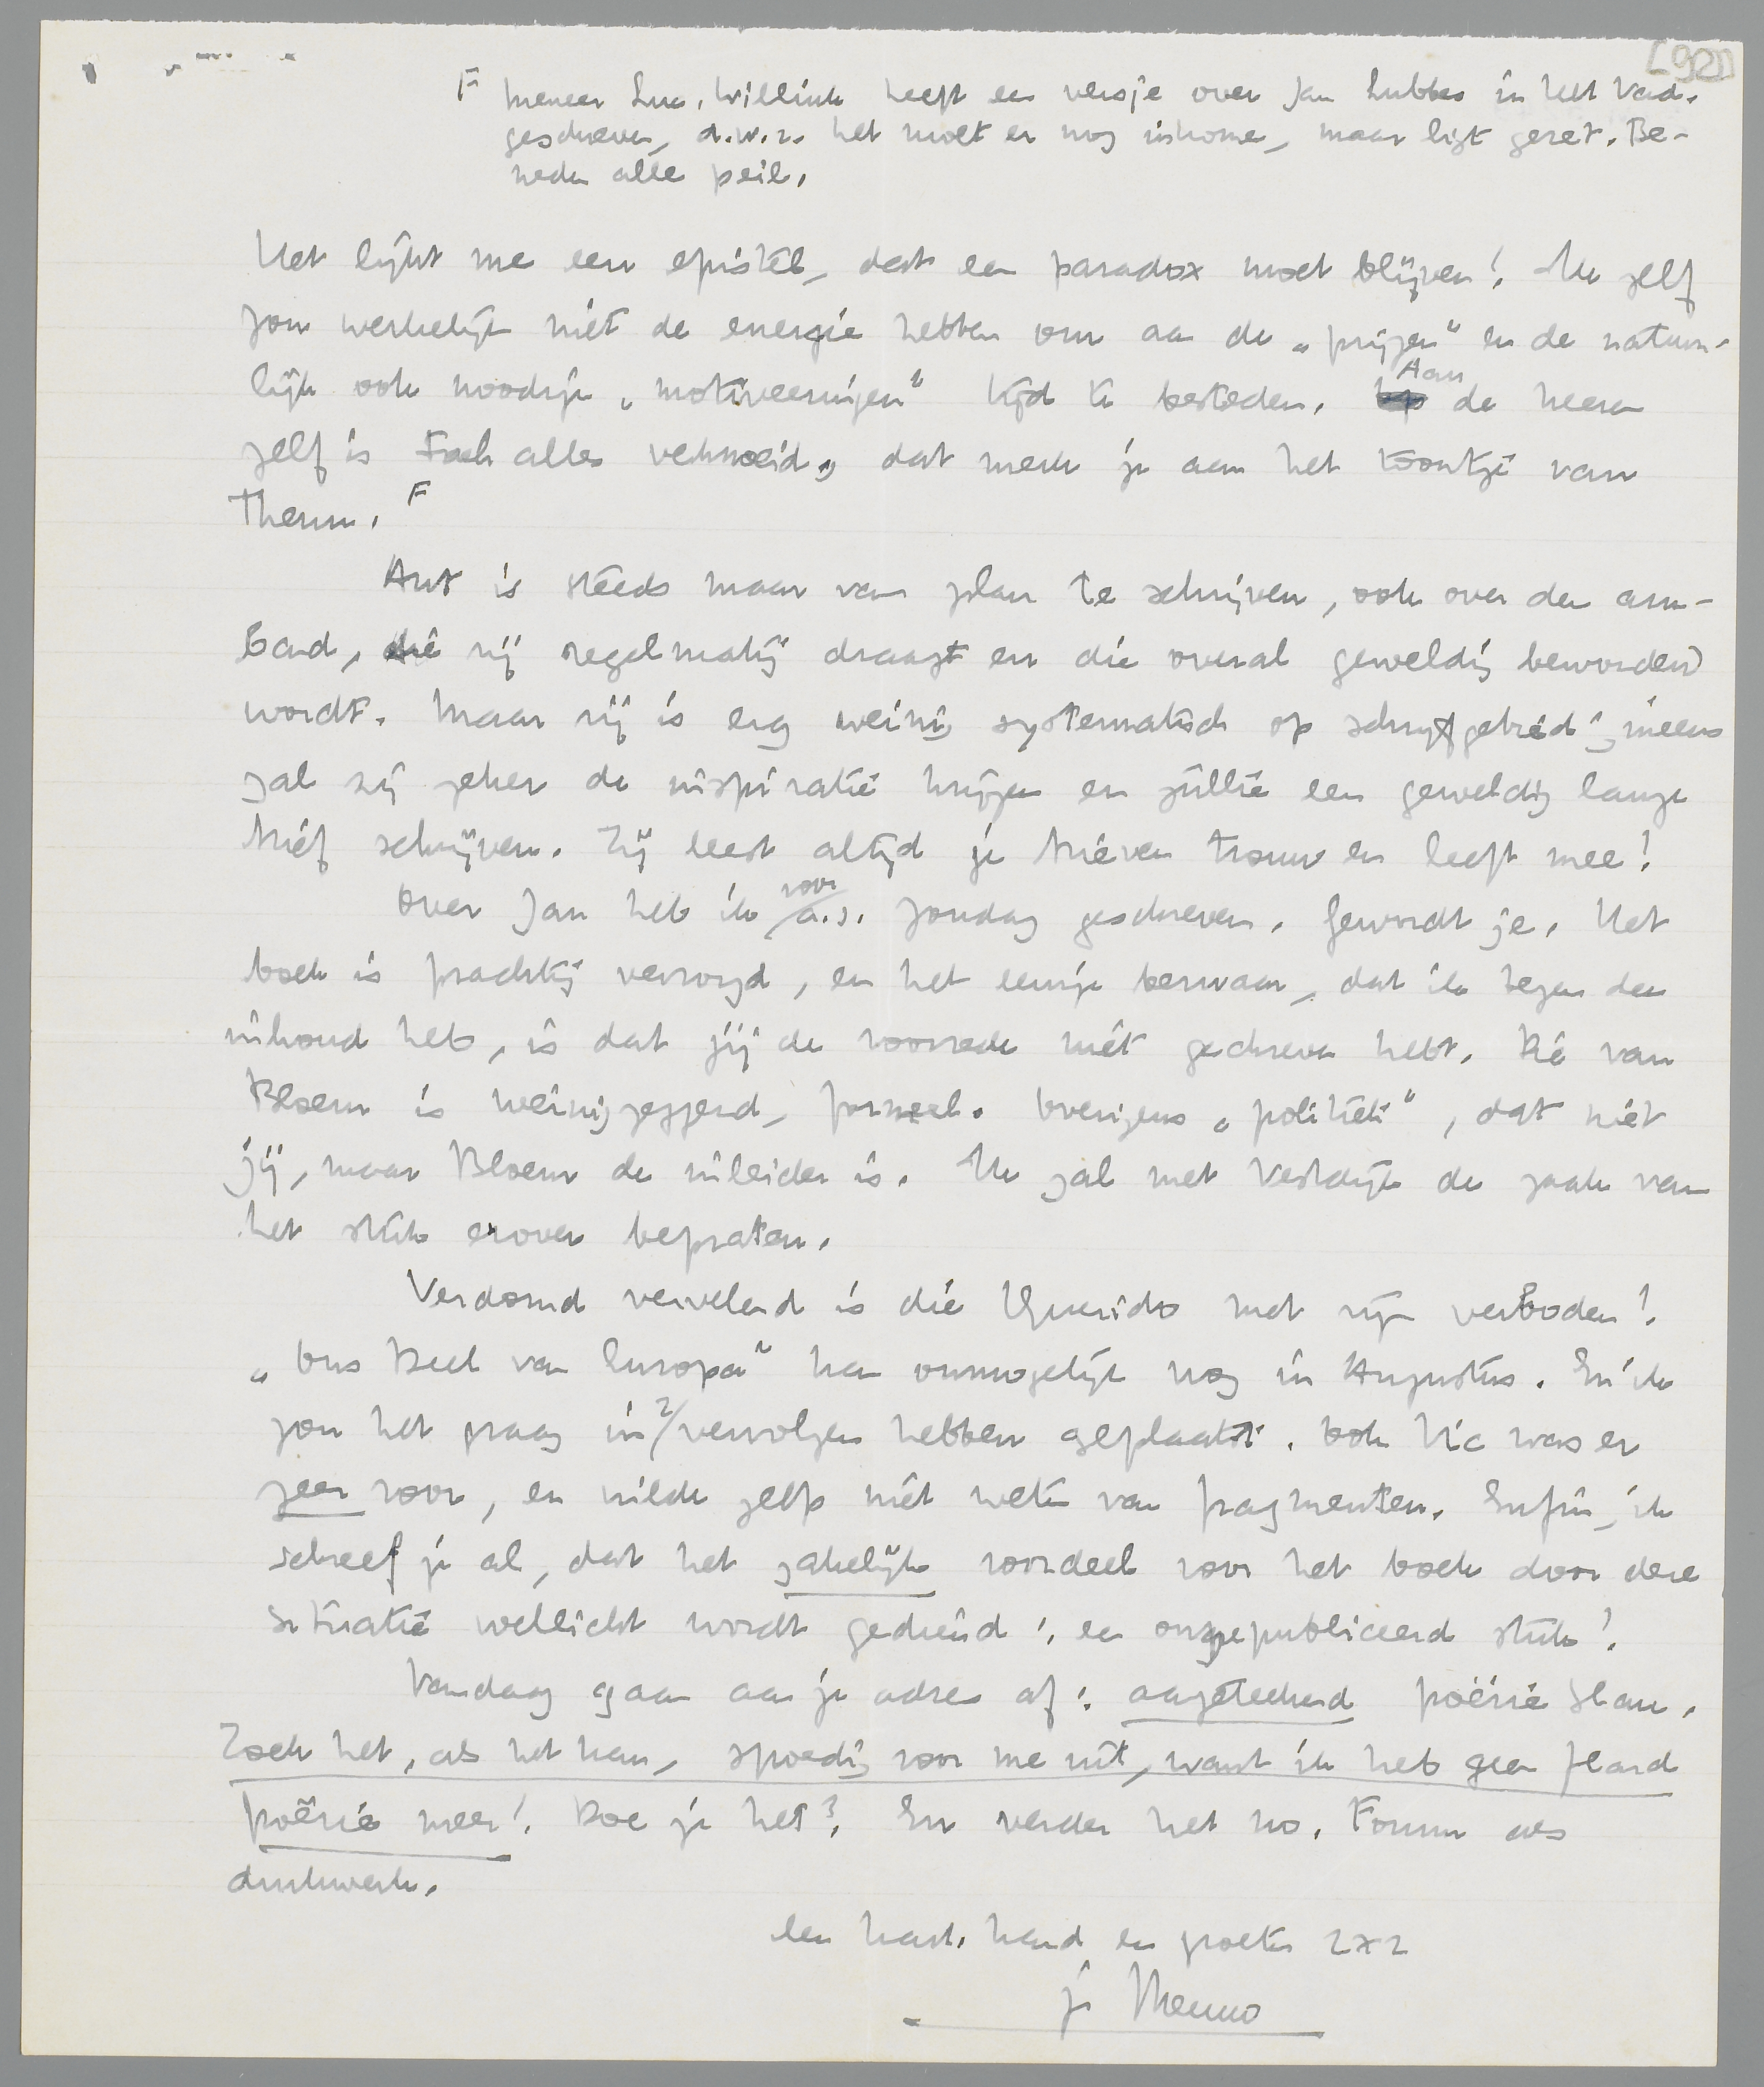 [92]
F Meneer Luc. Willink heeft een versje over Jan Lubbes in Het Vad.
geschreven, d.w.z. het moet er nog inkomen, maar ligt gezet. Be-
neden alle peil.
Het lijkt me een epistel, dat een paradox moet blijven! Ik zelf
zou werkelijk niet de energie hebben om aan de „prijzen" en de natuur-
lijk ook noodige „motiveeringen" tijd te besteden. Aan de heeren
zelf is toch alles vermoeid, dat merk je aan het toontje van
Therm. F
Ant is steeds maar van plan te schrijven, ook over den arm-
band, die zij regelmatig draagt en die overal geweldig bewonderd
wordt. Maar zij is erg weinig systematisch op schrijfgebied; ineens
zal zij zeker de inspiratie krijgen en jullie een geweldig lange
brief schrijven. Zij leest altijd je brieven trouw en leeft mee!
Over Jan heb ik voor a.s. Zondag geschreven. Ge wordt je. Het
boek is prachtig verzorgd, en het eenige bezwaar, dat ik tegen den
inhoud heb, is dat jij de voorrede niet geschreven hebt. Die van
Bloem is weinigzeggend, formeel. Overigens „politiek", dat niet
jij, maar Bloem de inleider is. Ik zal met Vestdijk de zaak van
het stuk erover bepraten.
Verdomd vervelend is die Querido met zijn verboden!
„Ons Deel van Europa" kan onmogelijk nog in Augustus. En ik
zou het graag in 2/vervolgen hebben geplaatst. Ook Vic was er
zeer voor, en wilde zelfs niet weten van fragmenten. Enfin, ik
schreef je al, dat het zakelijk voordeel voor het boek door deze
situatie wellicht wordt gediend: een ongepubliceerd stuk!
Vandaag gaan aan je adres af: aangeteekend poëzie Slau.
Zoek het, als het kan, spoedig voor me uit, want ik heb geen flard
poëzie meer! Doe je het? En verder het no. Forum als
drukwerk.
Een hart. hand en groeten 2x2
je Menno